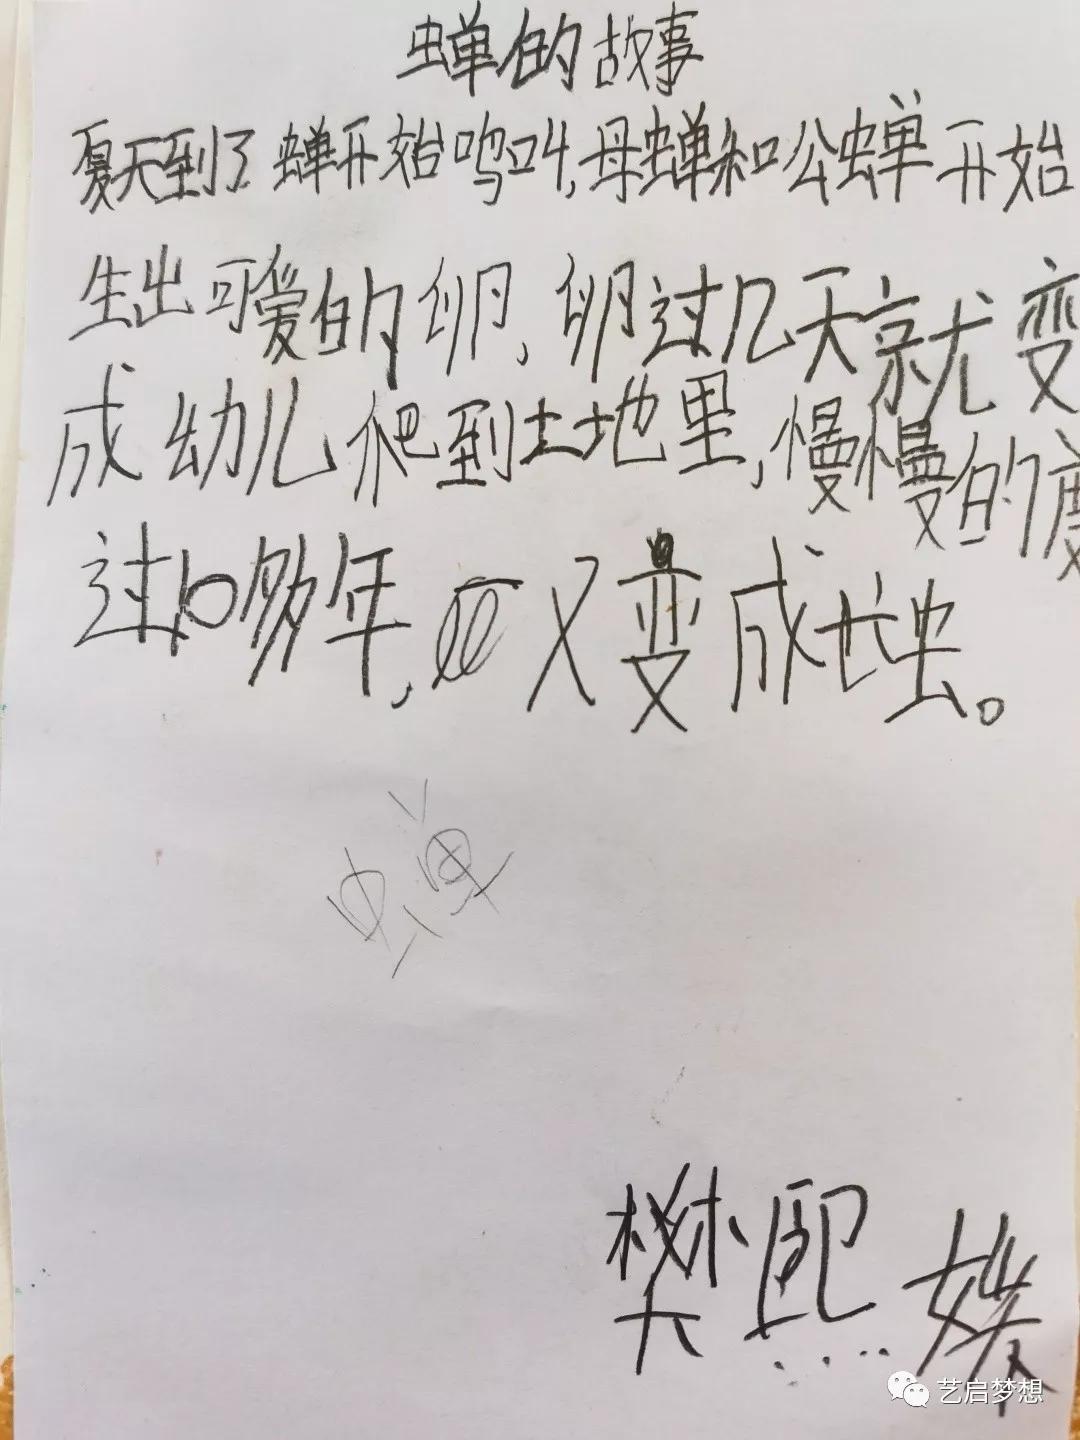 蝉的故事
夏天到了蝉开始鸣叫,母蝉和公蝉开始
生出可爱的卵,卵过几天就变
成幼儿爬到土地里,慢慢的度
过10多年,又变成虫。
蝉
樊熙
艺启梦想